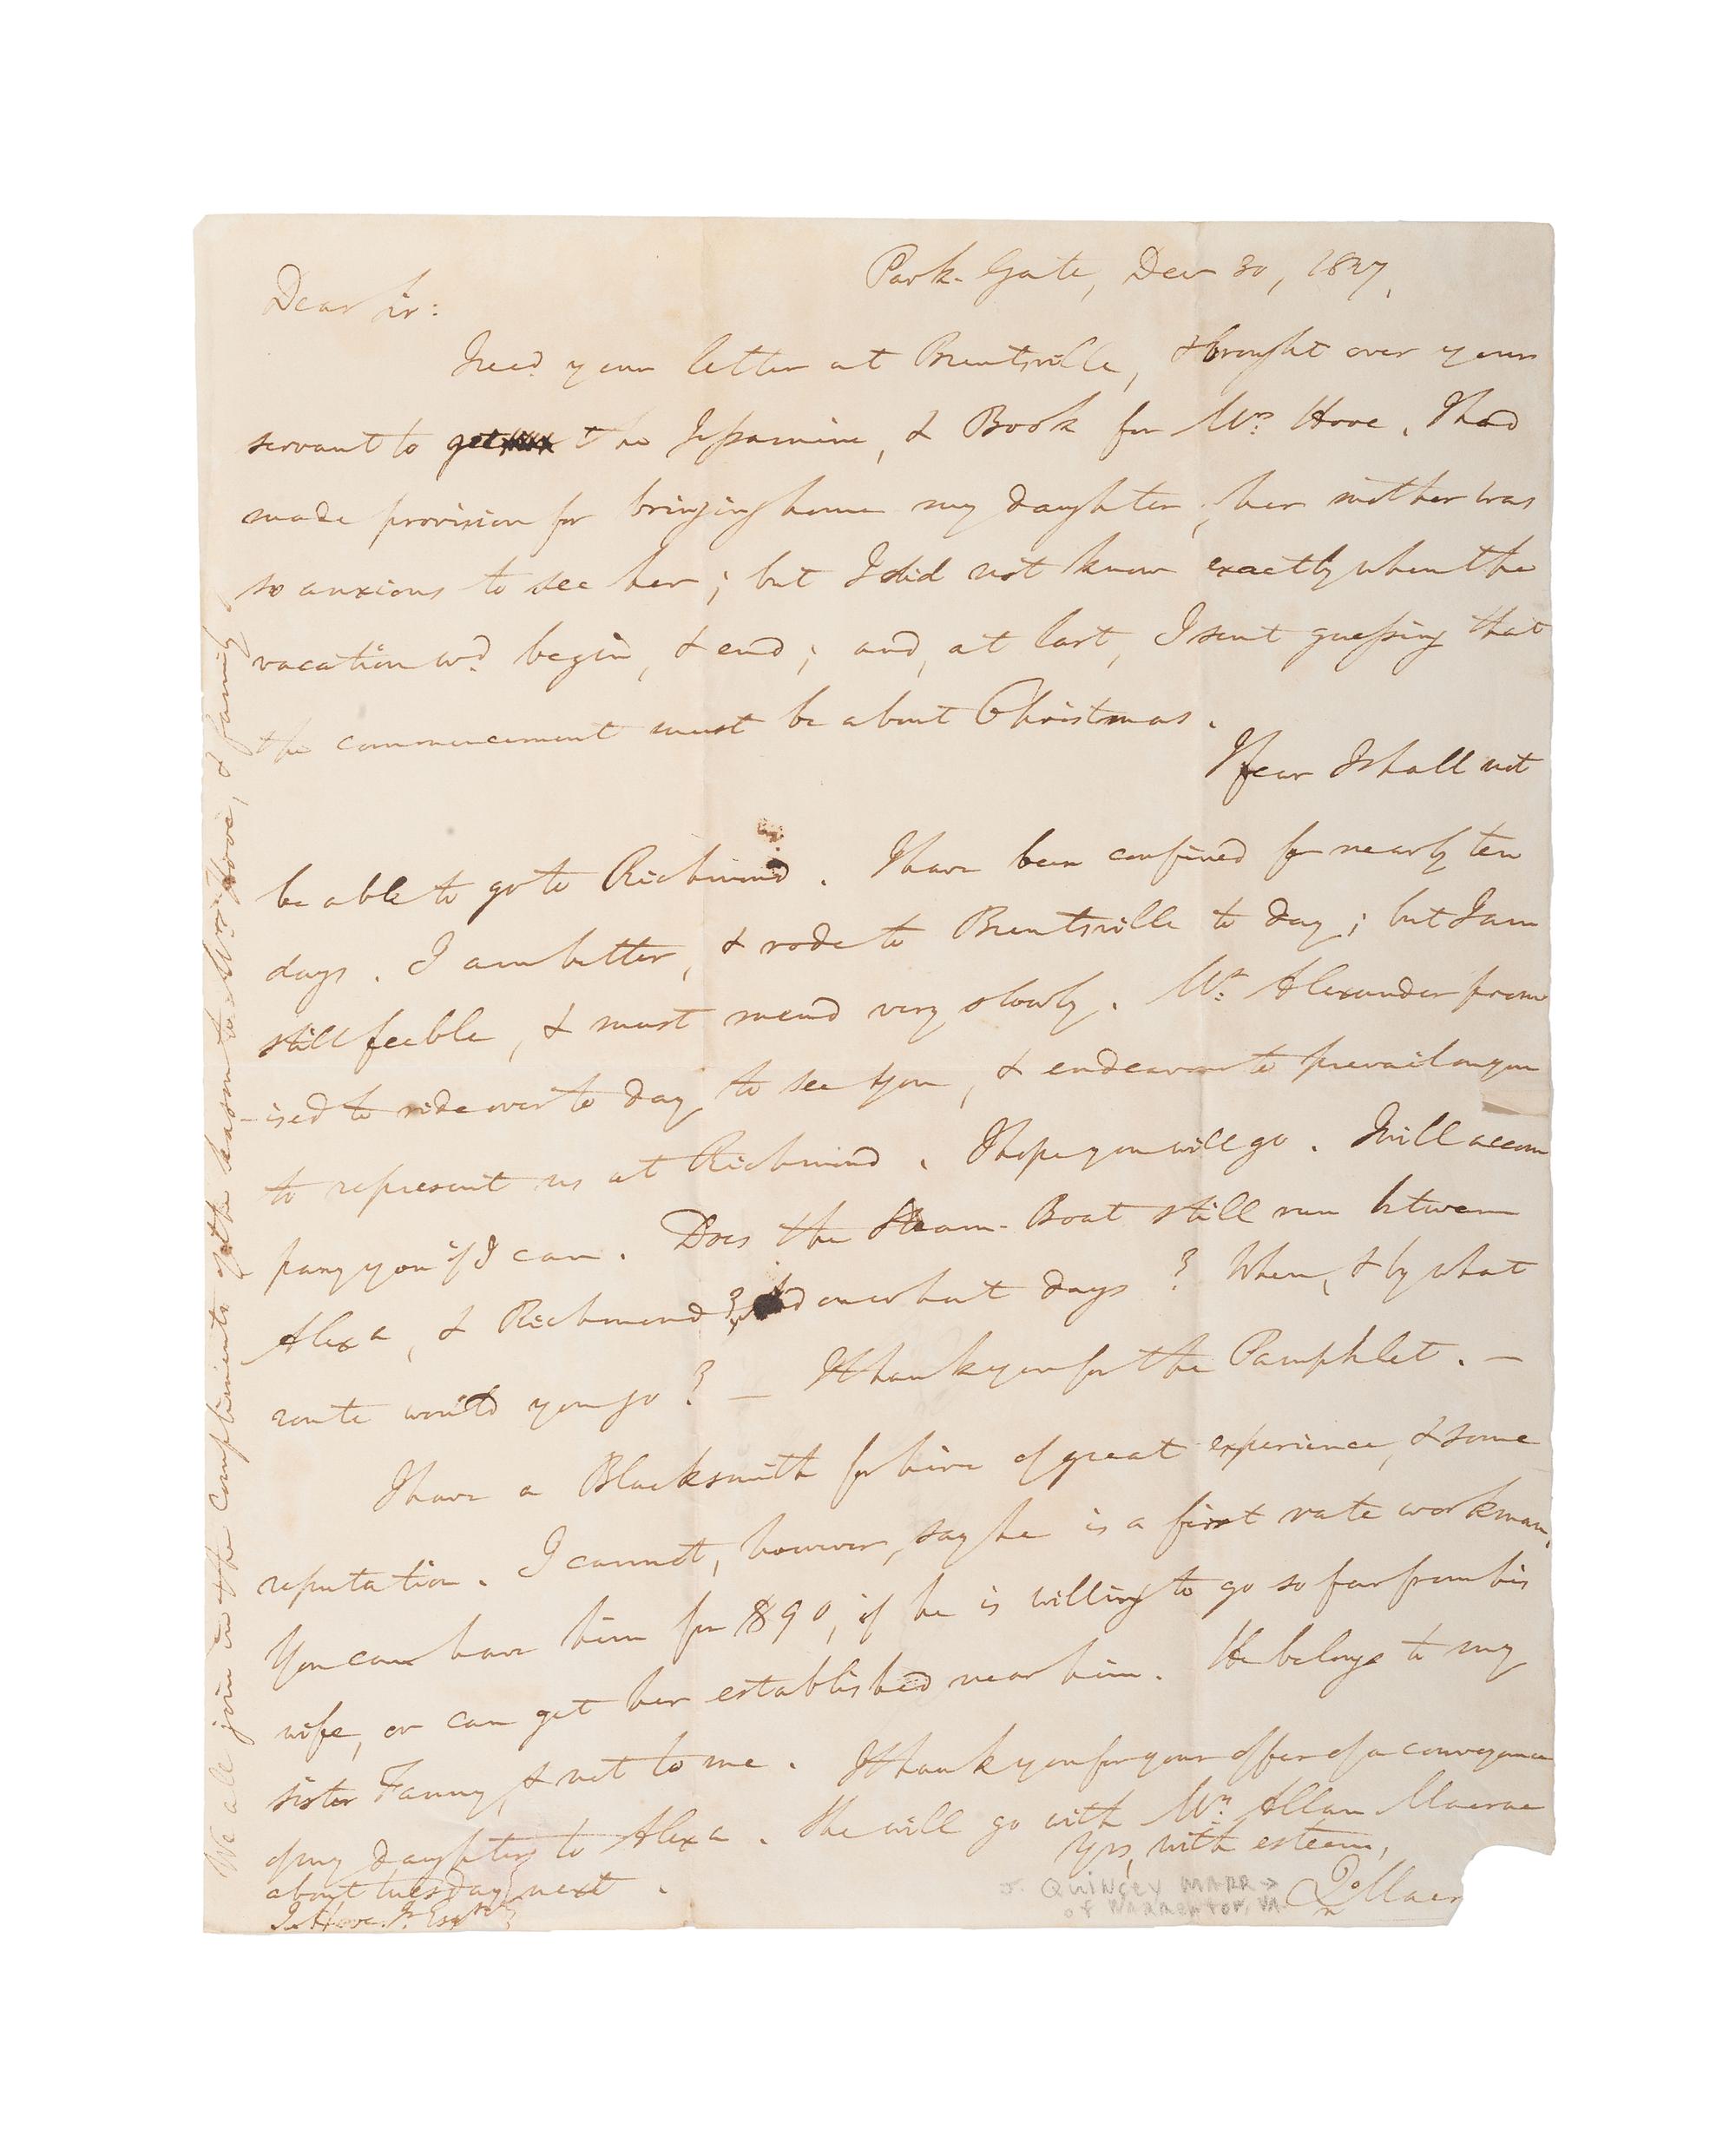 Park-Gate, Decr 30, 1827,
Dear Sir:
I recd your letter at Brentsville, & brought over your
servant to get the Jessamine, & Book for Mrs Hooe. I had
made provision for bringing home my daughter, her mother was
so anxious to see her; but I did not know exactly when the
vacation wd begin, & end; and, at last, I sent guessing that
the commencement must be about Christmas.
I fear I shall not
be able to go to Richmond. I have been confined for nearly ten
days. I am better, & rode to Brentsville to day; but I am
still feeble, & must mend very slowly. Mr Alexander prom
-ised to ride over to day to see you, & endeavour to prevail on you
to represent us at Richmond. I hope you will go. I will accom
pany you if I can. Does the Steam-Boat still run between
Alexa, & Richmond? and on what days? When, & by what
route would you go? — I thank you for the Pamphlet. —
I have a Blacksmith for hire of great experience, & some
reputation. I cannot, however, say he is a first rate workman.
You can have him for $90, if he is willing to go so far from his
wife, or can get her established near him. He belongs to my
sister Fanny, & not to me. I thank you for your offer of a conveyance
of my daughter to Alexa. She will go with Mr Allan Macrae
about tuesday next.
Yrs, with esteem,
J. Hooe Jr Esqr
J. QUINCEY MARR →
of WARRENTON, VA
We all join in the compliments of the season to Mrs Hooe, & family